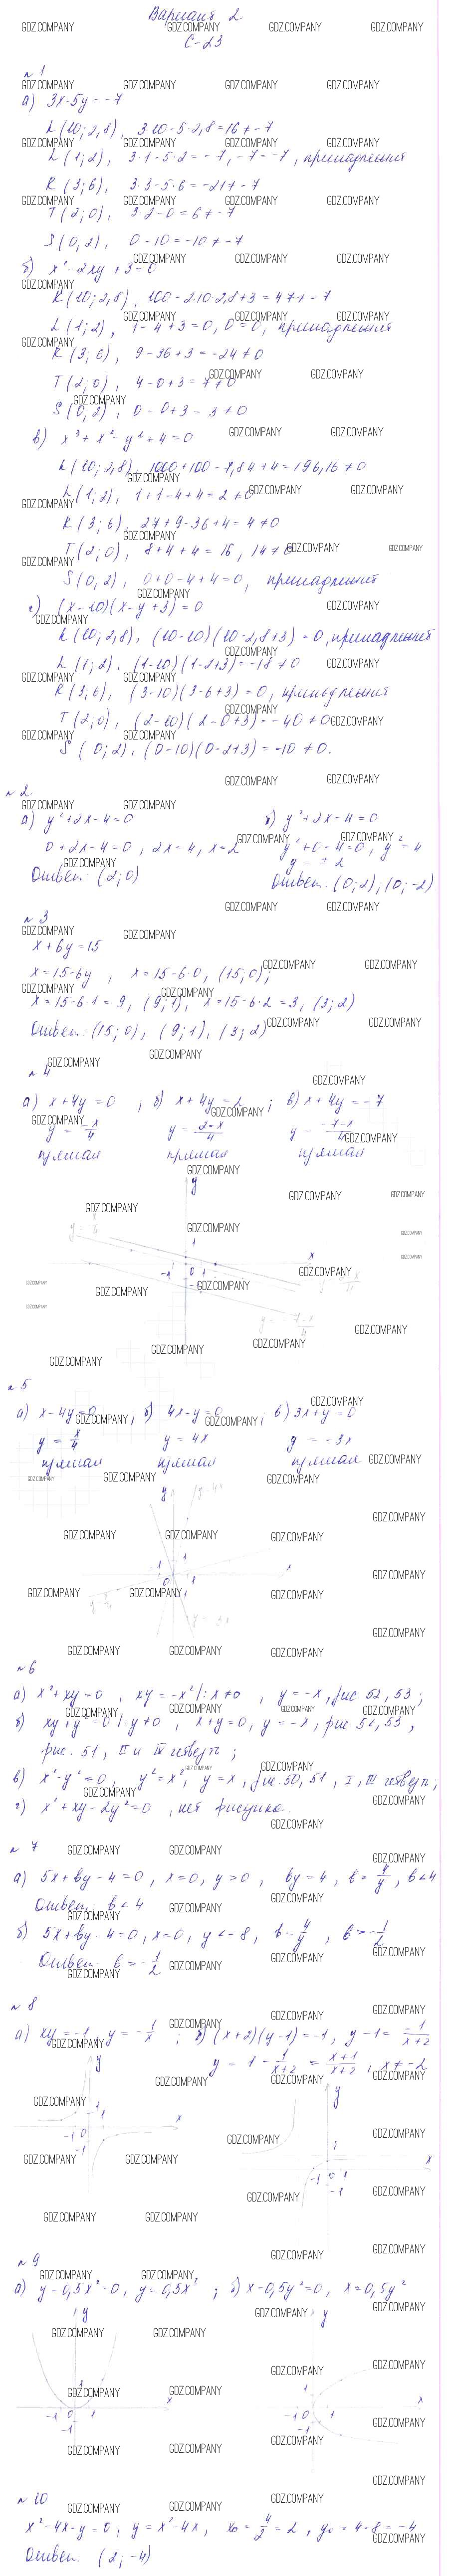 Вариант 2
С-23
№1
а) 3x-5y=-7
L(10; 2,8), 3·10-5·2,8=16≠-7
L(1; 2), 3·1-5·2=-7, -7=-7, принадлежит
R(3; 6), 3·3-5·6=-21≠-7
T(2; 0), 3·2-0=6≠-7
S(0; 2), 0-10=-10≠-7
б) x²-2xy+3=0
K(10; 2,8), 100-2·10·2,8+3=47≠-7
L(1; 2), 1-4+3=0, 0=0, принадлежит
R(3; 6), 9-36+3=-24≠0
T(2; 0), 4-0+3=7≠0
S(0; 2), 0-0+3=3≠0
в) x³+x²-y²+4=0
L(10; 2,8), 1000+100-7,84+4=196,16≠0
L(1; 2), 1+1-4+4=2≠0
K(3; 6), 27+9-36+4=4≠0
T(2; 0), 8+4+4=16, 14≠0
S(0; 2), 0+0-4+4=0, принадлежит
г) (x-10)(x-y+3)=0
L(10; 2,8), (10-10)(10-2,8+3)=0, принадлежит
L(1; 2), (1-10)(1-2+3)=-18≠0
R(3; 6), (3-10)(3-6+3)=0, принадлежит
T(2; 0), (2-10)(2-0+3)=-40≠0
S(0; 2), (0-10)(0-2+3)=-10≠0.
№2
а) y²+2x-4=0 б) y²+2x-4=0
0+2x-4=0, 2x=4, x=2 y²+0-4=0, y²=4
y=±2
Ответ: (2; 0) Ответ: (0; 2); (0; -2)
№3
x+6y=15
x=15-6y, x=15-6·0, (15; 0);
x=15-6·1=9, (9; 1), x=15-6·2=3, (3; 2)
Ответ: (15; 0), (9; 1), (3; 2)
№4
а) x+4y=0; б) x+4y=2; в) x+4y=-7
y=-x/4 y=(2-x)/4 y=(-7-x)/4
прямая прямая прямая
y
1
x
-1 0 1
№5
а) x-4y=0; б) 4x-y=0; в) 3x+y=0
y=x/4 y=4x y=-3x
прямая прямая прямая
y
-1 1 x
0 1
№6
а) x²+xy=0, xy=-x² |: x≠0, y=-x, рис. 52, 53;
б) xy+y²=0 |: y≠0, x+y=0, y=-x, рис. 52, 53,
рис. 51, II и IV четверть;
в) x²-y²=0, y²=x², y=x, рис. 50, 51, I, III четверть;
г) x²+xy-2y²=0, нет рисунка.
№7
а) 5x+by-4=0, x=0, y>0, by=4, b=4/y, b<4
Ответ: b<4
б) 5x+by-4=0, x=0, y<-8, b=4/y, b>-1/2
Ответ: b>-1/2
№8
а) xy=-1, y=-1/x; б) (x+2)(y-1)=-1, y-1=-1/(x+2)
y=1-1/(x+2)=(x+1)/(x+2), x≠-2
y y
1 x
-1 0 1 -1 0 1
-1 -1
№9
а) y-0,5x²=0, y=0,5x²; б) x-0,5y²=0, x=0,5y²
y y
1 x 1 x
-1 0 1 -1 0 1
-1 -1
№10
x²-4x-y=0, y=x²-4x, x₀=4/2=2, y₀=4-8=-4
Ответ: (2; -4)
GDZ.COMPANY